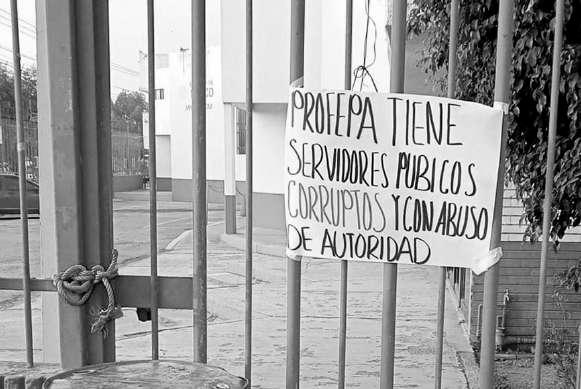 PROFEPA TIENE
SERVIDORES PUBICOS
CORRUPTOS Y CON ABUSO
DE AUTORIDAD